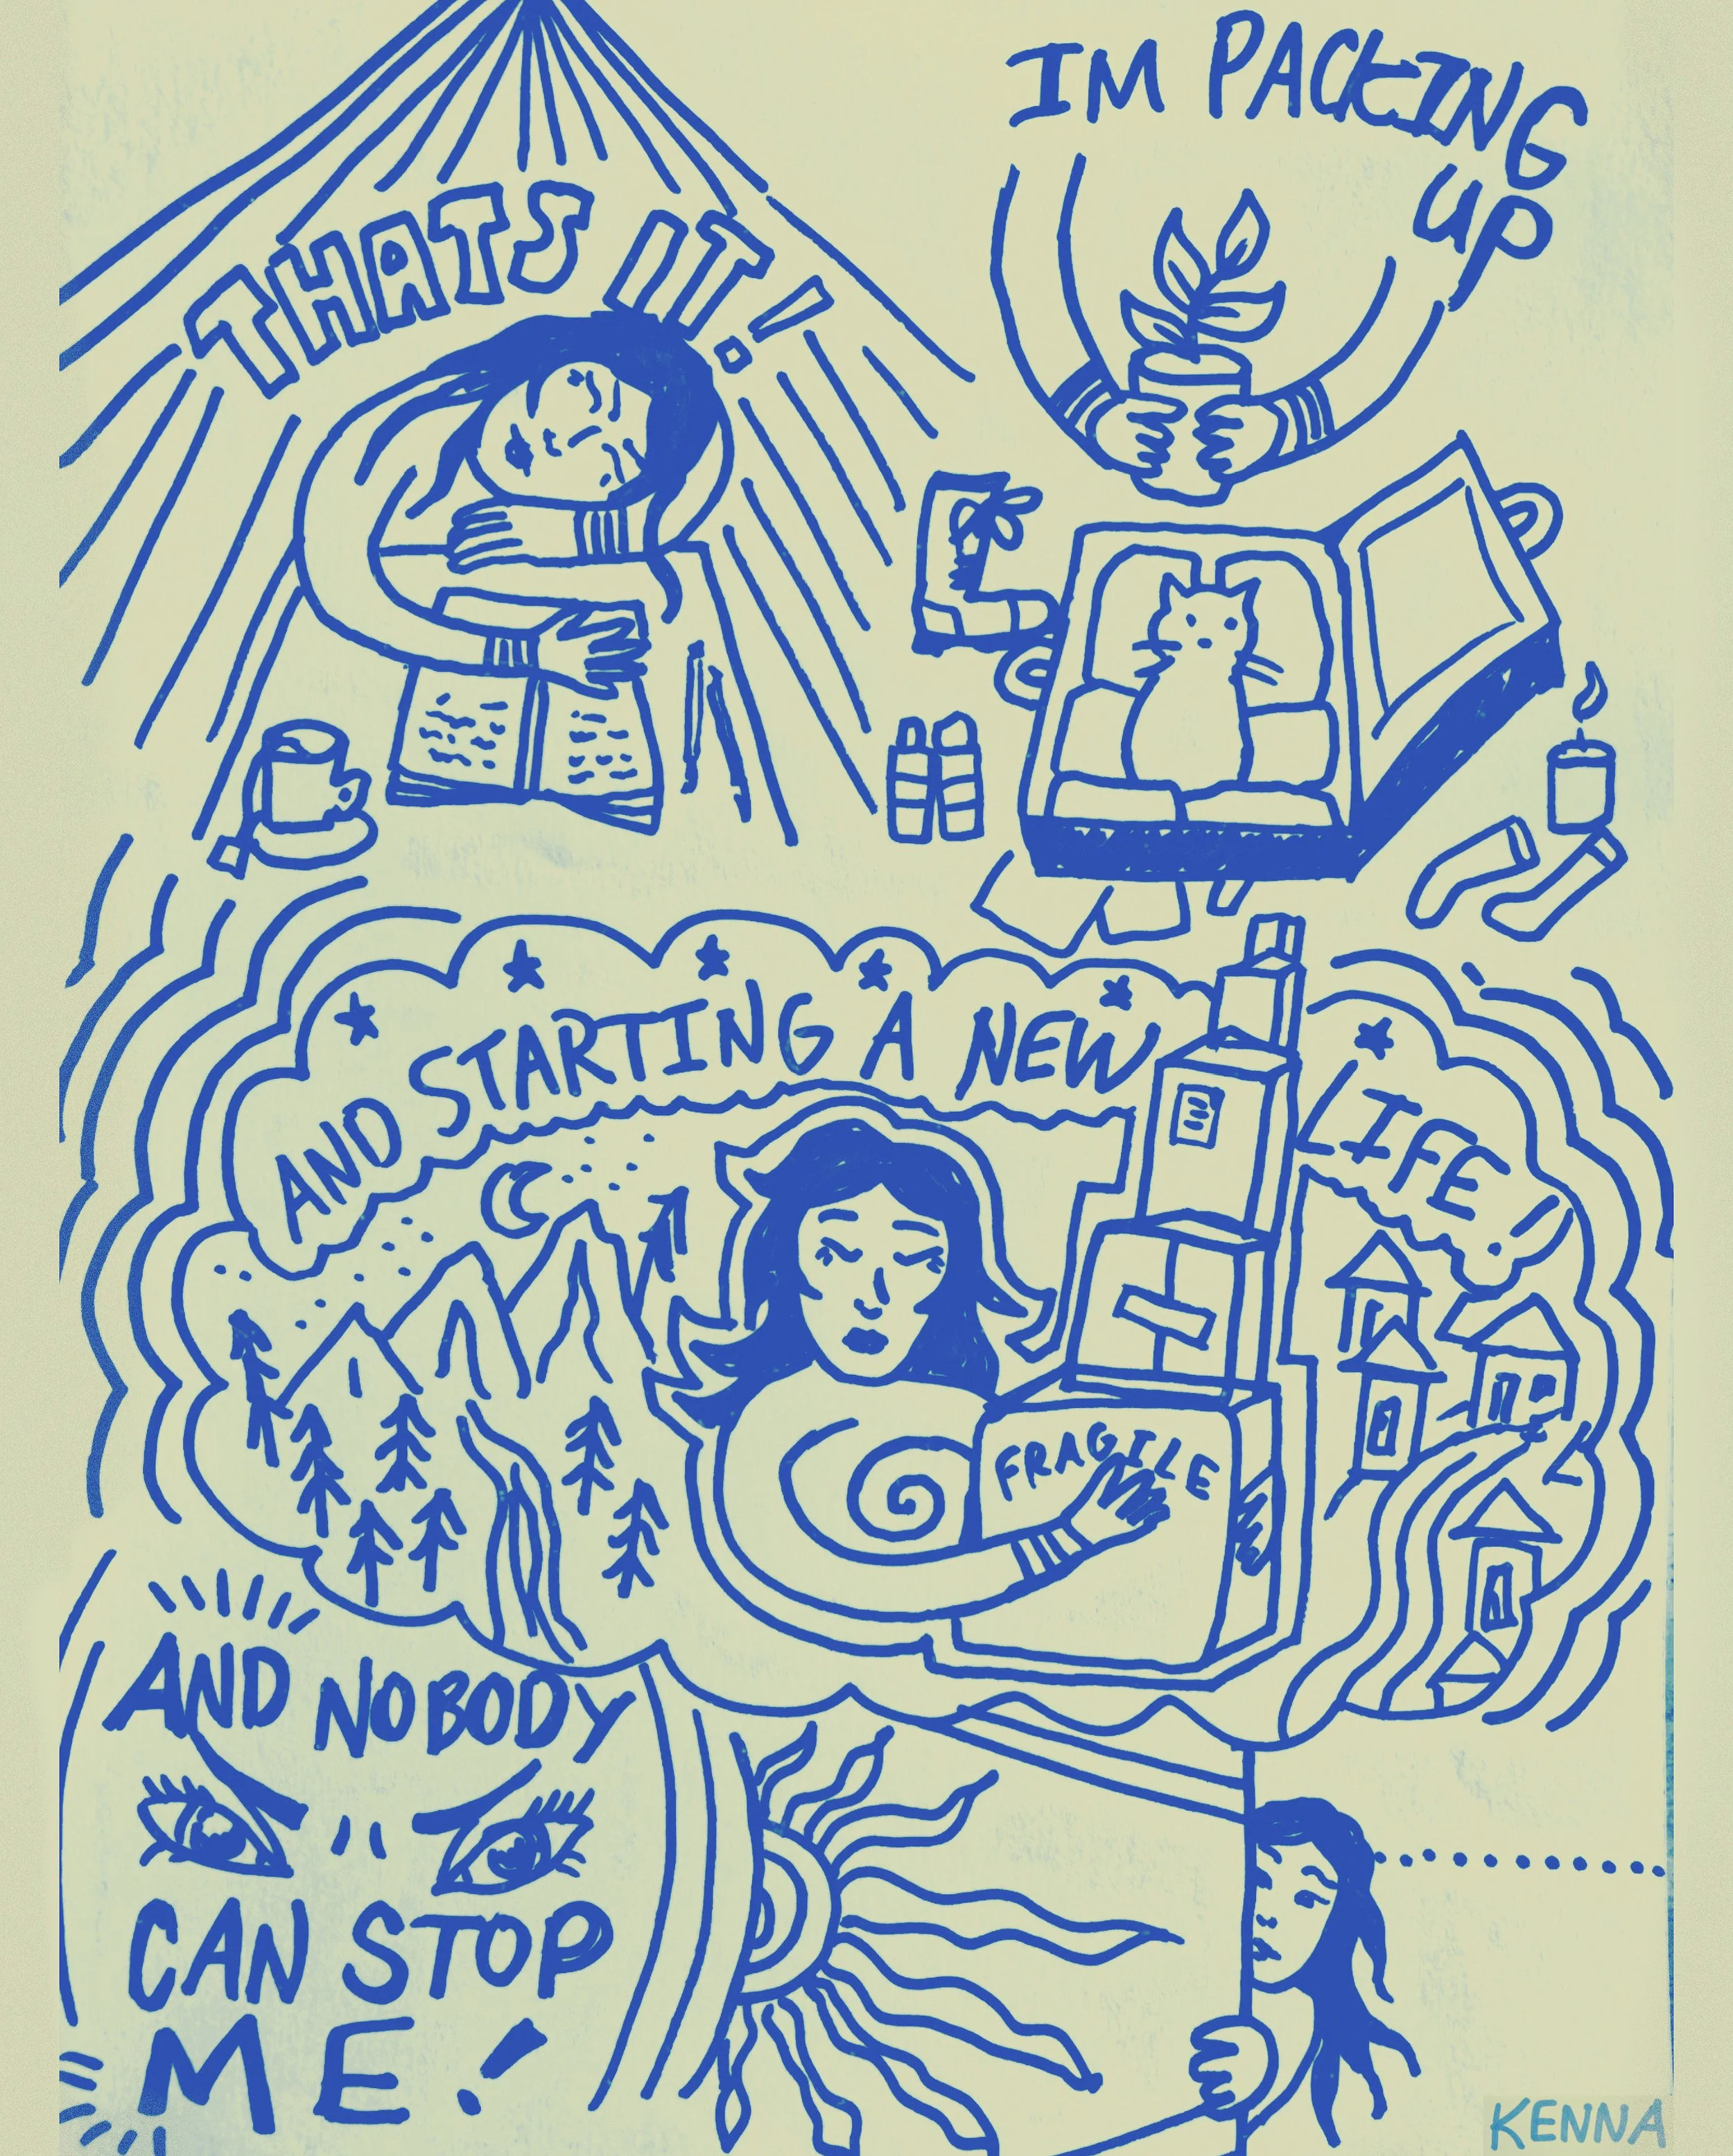 THATS IT!
IM PACKING
UP
AND STARTING A NEW
LIFE!
FRAGILE
AND NOBODY
CAN STOP
ME!
KENNA